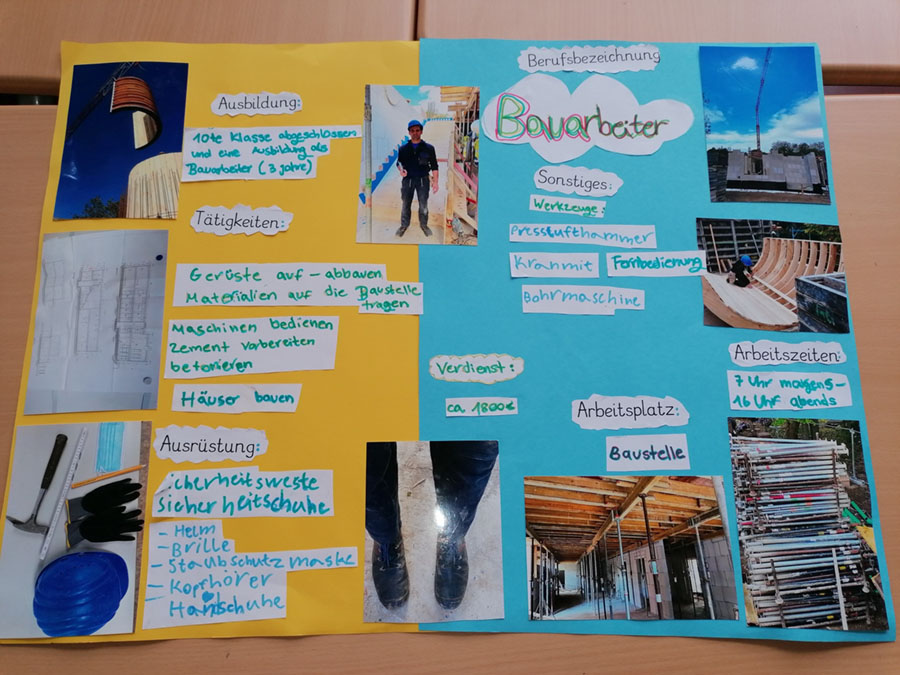 Ausbildung:
10te Klasse abgeschlossen
und eine Ausbildung als
Bauarbeiter (3 jahre)
Tätigkeiten:
Gerüste auf - abbauen
Materialien auf die Baustelle
tragen
Maschinen bedienen
Zement vorbereiten
betonieren
Häuser bauen
Ausrüstung:
sicherheitsweste
sicherheitschuhe
- Helm
- Brille
- Staubschutzmaske
- Kopfhörer
- Handschuhe
Berufsbezeichnung
Bauarbeiter
Sonstiges:
Werkzeuge:
Presslufthammer
Kran mit Fernbedienung
Bohrmaschine
Verdienst:
ca. 1800€
Arbeitsplatz:
Baustelle
Arbeitszeiten:
7 Uhr morgens -
16 Uhr abends